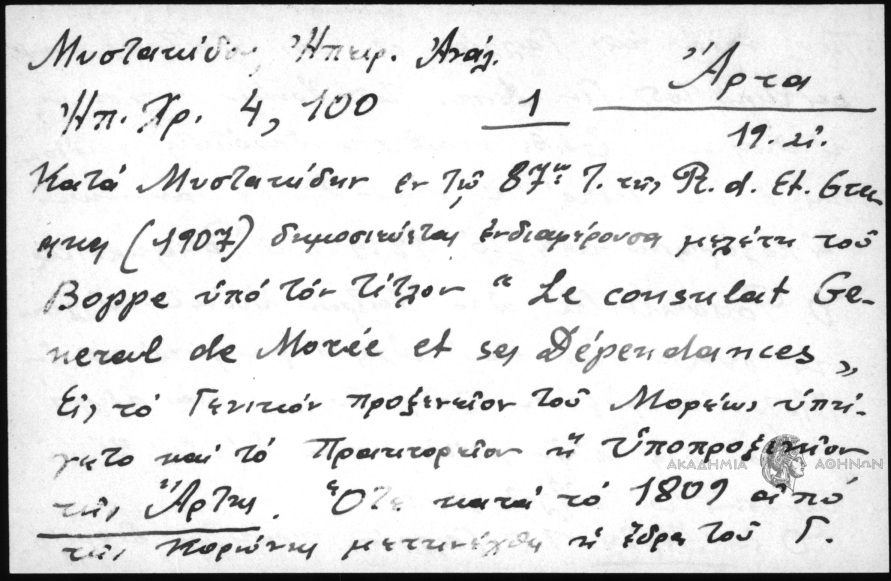 Μυστακίδου, Ἠπειρ. Ἀνάλ.
Ἄρτα
Ἠπ. Χρ. 4, 100
1
19. αἰ.
Κατά Μυστακίδην ἐν τῷ 87ῳ τ. τῆς R. d. Et. Grec-
ques (1907) δημοσιεύεται ἐνδιαφέρουσα μελέτη τοῦ
Boppe ὑπό τόν τίτλον “ Le consulat Ge-
neral de Morée et ses Dépendances „
Εἰς τό Γενικόν προξενεῖον τοῦ Μορέως ὑπή-
γετο καί τό Πρακτορεῖον ἤ Ὑποπροξενεῖον
τῆς Ἄρτης. Ὅτε κατά τό 1809 ἀπό
τῆς Κορώνης μετηνέχθη ἡ ἕδρα τοῦ Γ.
ΑΚΑΔΗΜΙΑ ΑΘΗΝΩΝ